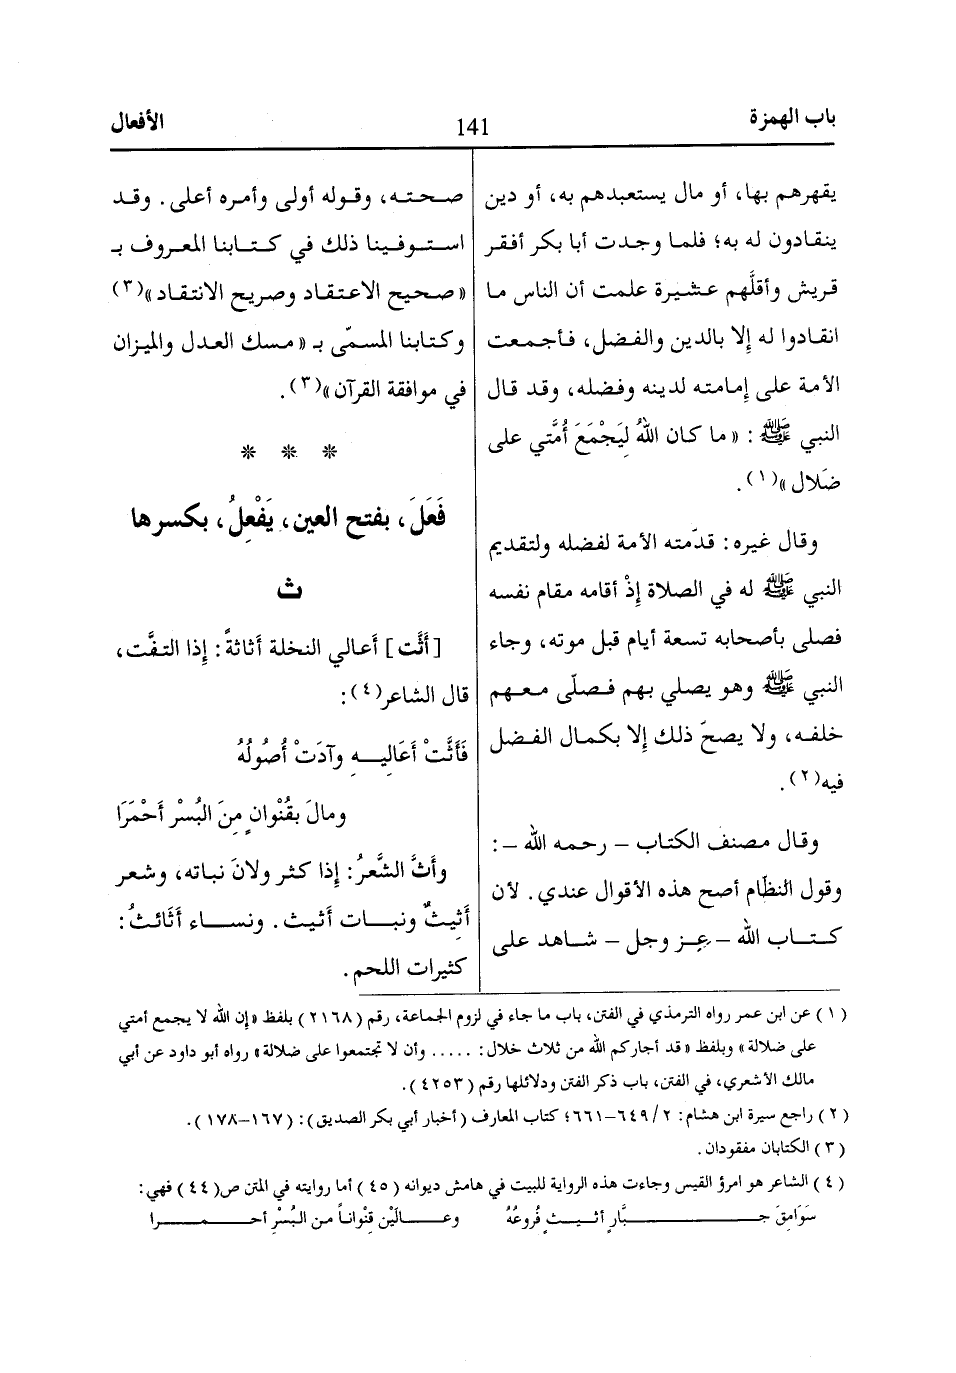 باب الهمزة
141
الأفعال
يقهرهم بها، أو مال يستعبدهم به، أو دين
ينقادون له به؛ فلما وجدت أبا بكر أفقر
قريش وأقلَّهم عشيرة علمت أن الناس ما
انقادوا له إلا بالدين والفضل، فأجمعت
الأمة على إمامته لدينه وفضله، وقد قال
النبي ﷺ : « ما كان اللهُ لِيَجْمَعَ أُمَّتي على
ضَلال »(١).
وقال غيره: قدّمته الأمة لفضله ولتقديم
النبي ﷺ له في الصلاة إذْ أقامه مقام نفسه
فصلى بأصحابه تسعة أيام قبل موته، وجاء
النبي ﷺ وهو يصلي بهم فصلّى معهم
خلفه، ولا يصحّ ذلك إلا بكمال الفضل
فيه(٢).
وقال مصنف الكتاب – رحمه الله – :
وقول النظّام أصح هذه الأقوال عندي. لأن
كتاب الله – عز وجل – شاهد على
صحته، وقوله أولى وأمره أعلى. وقد
استوفينا ذلك في كتابنا المعروف بـ
« صحيح الاعتقاد وصريح الانتقاد »(٣)
وكتابنا المسمّى بـ « مسك العدل والميزان
في موافقة القرآن »(٣).
* * *
فَعَلَ، بفتح العين، يَفْعِلُ، بكسرها
ث
[ أَثَّت ] أعالي النخلة أثاثةً: إذا التفَّت،
قال الشاعر(٤):
فَأَثَّتْ أَعَالِيهِ وآدَتْ أُصُولُهُ
ومالَ بقُنْوانٍ مِنَ البُسْرِ أَحْمَرَا
وأثَّ الشَّعرُ: إذا كثر ولانَ نباته، وشعر
أَثِيثٌ ونبات أثيث. ونساء أثَائثُ:
كثيرات اللحم.
(١) عن ابن عمر رواه الترمذي في الفتن، باب ما جاء في لزوم الجماعة، رقم (٢١٦٨) بلفظ «إن الله لا يجمع أمتي
على ضلالة» وبلفظ «قد أجاركم الله من ثلاث خلال: ..... وأن لا تجتمعوا على ضلالة» رواه أبو داود عن أبي
مالك الأشعري، في الفتن، باب ذكر الفتن ودلائلها رقم (٤٢٥٣).
(٢) راجع سيرة ابن هشام: ٢/ ٦٤٩–٦٦١؛ كتاب المعارف (أخبار أبي بكر الصديق): (١٦٧–١٧٨).
(٣) الكتابان مفقودان.
(٤) الشاعر هو امرؤ القيس وجاءت هذه الرواية للبيت في هامش ديوانه (٤٥) أما روايته في المتن ص(٤٤) فهي:
سَوَامِقَ جـــبَّارٍ أثيـثٍ فُروعُهُ وعـالَيْن قِنْواناً من البُسْرِ أحـمـرا